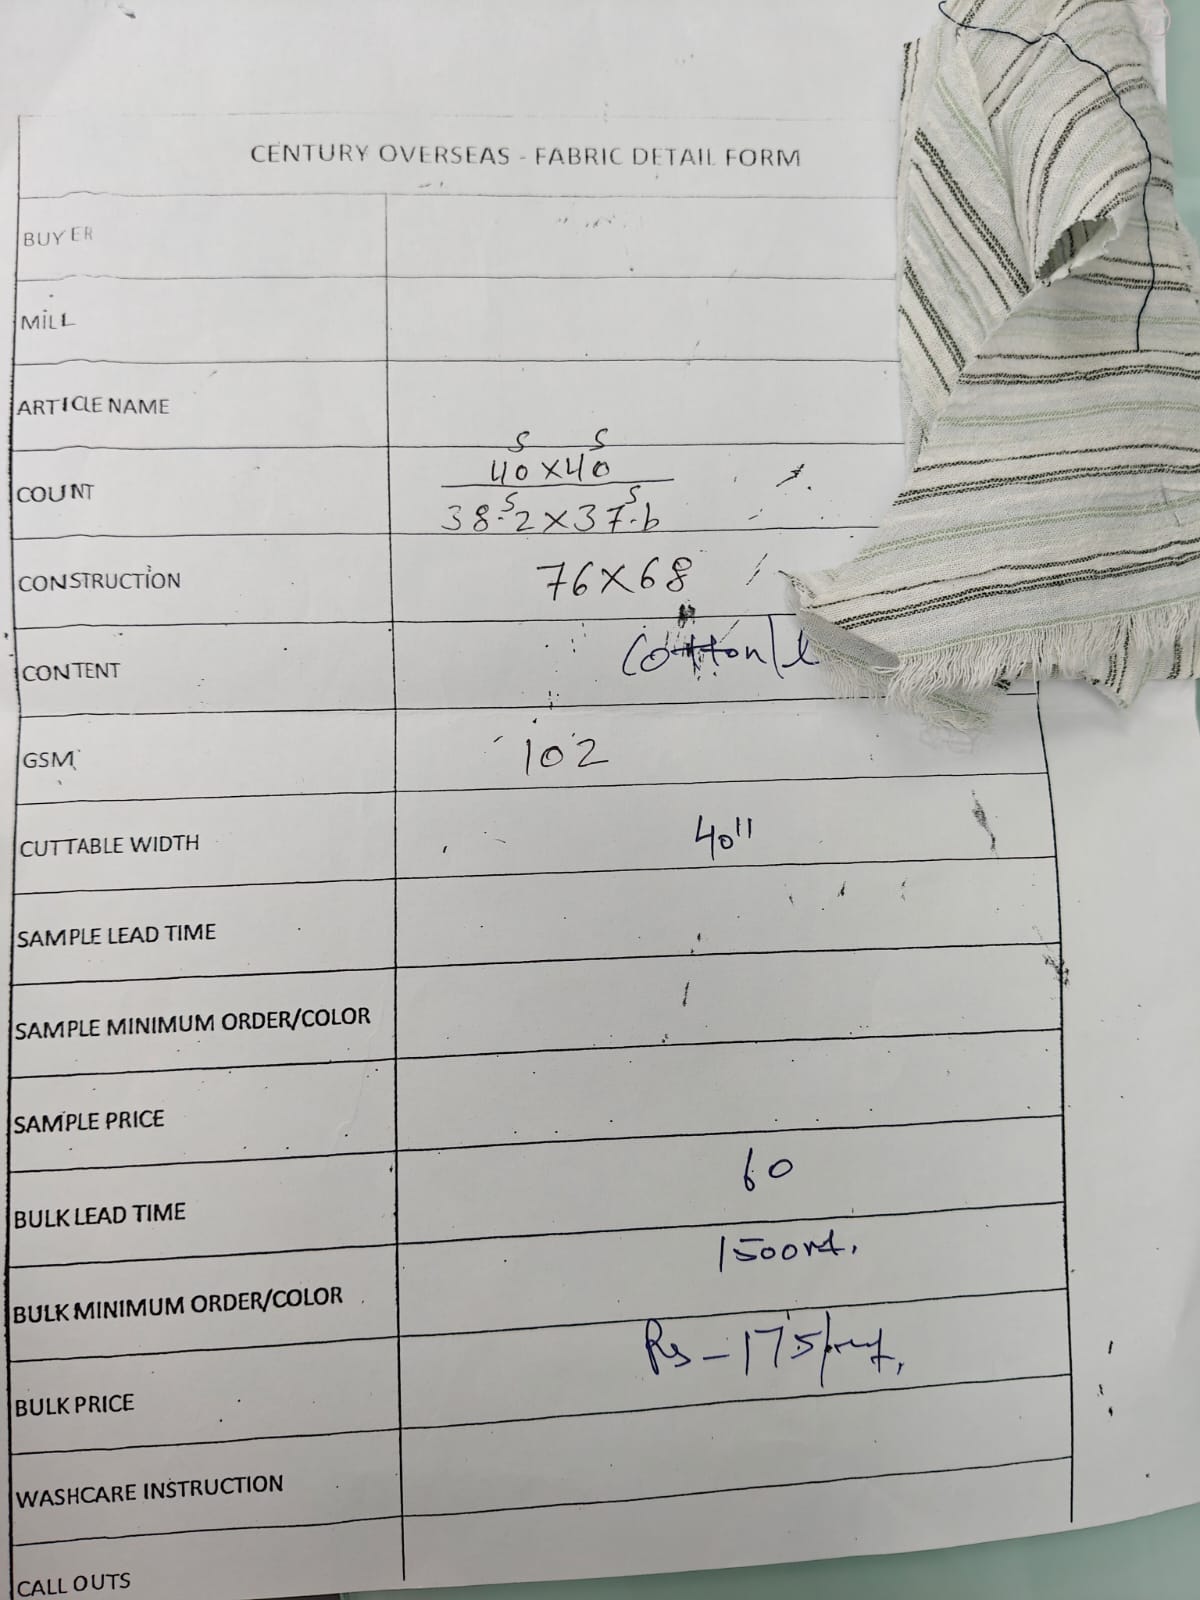 CENTURY OVERSEAS - FABRIC DETAIL FORM
BUYER
MILL
ARTICLE NAME
COUNT
40s x 40s
38.2s x 37.6s
CONSTRUCTION 76x68
CONTENT Cotton/l
GSM 102
CUTTABLE WIDTH 40"
SAMPLE LEAD TIME
SAMPLE MINIMUM ORDER/COLOR
SAMPLE PRICE
BULK LEAD TIME 60
BULK MINIMUM ORDER/COLOR 1500
BULK PRICE Rs - 175/
WASHCARE INSTRUCTION
CALL OUTS